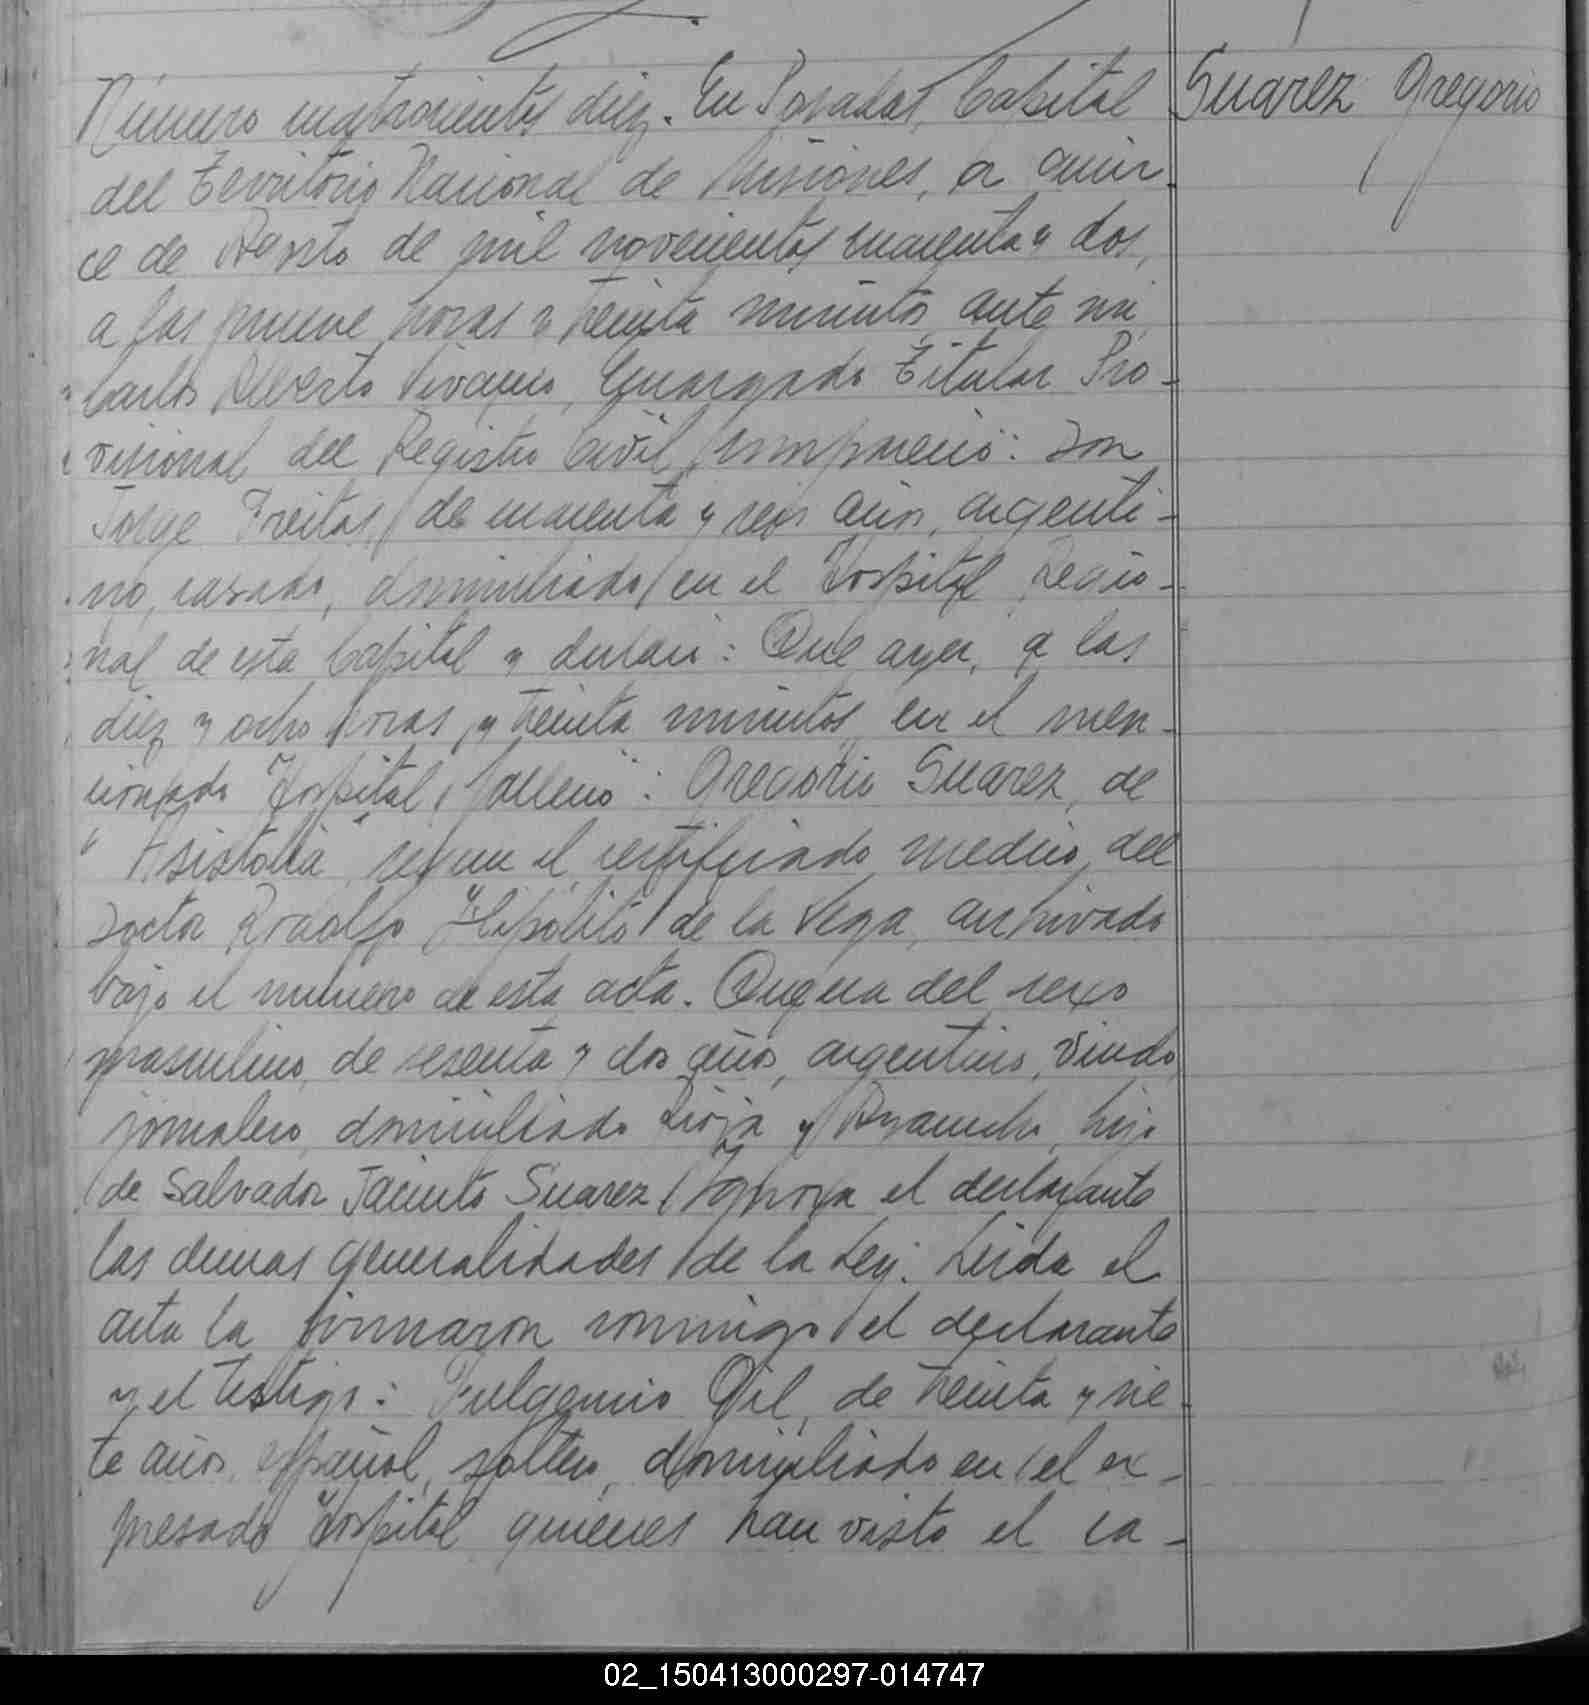 Suarez Gregorio
Número cuatrocientos diez. En Posadas, Capital
del Territorio Nacional de Misiones, a quin-
ce de Agosto de mil novecientos cuarenta y dos,
a las nueve horas y treinta minutos ante mi
Carlos Alberto Encargado Titular Pro-
visional del Registro Civil, compareció: Don
Jorge Freitas, de cuarenta y seis años, argenti-
no, casado, domiciliado en el Hospital Regio-
nal de esta Capital y declaró: Que ayer, a las
diez y ocho horas y treinta minutos en el men-
cionado Hospital, falleció: Gregorio Suarez, de
"Asistolia" según el certificado medico del
Doctor Rodolfo Hipólito de la Vega, archivado
bajo el número de esta acta. Que era del sexo
masculino, de sesenta y dos años, argentino, viudo,
jornalero, domiciliado Rioja y Ayacucho, hijo
de Salvador Jacinto Suarez, Ignora el declarante
las demas generalidades de la Ley. Leida el
acta la firmaron conmigo el declarante
y el testigo: Fulgencio Gil, de treinta y sie-
te años, español, soltero, domiciliado en el ex-
presado Hospital quienes han visto el ca-
02_150413000297-014747